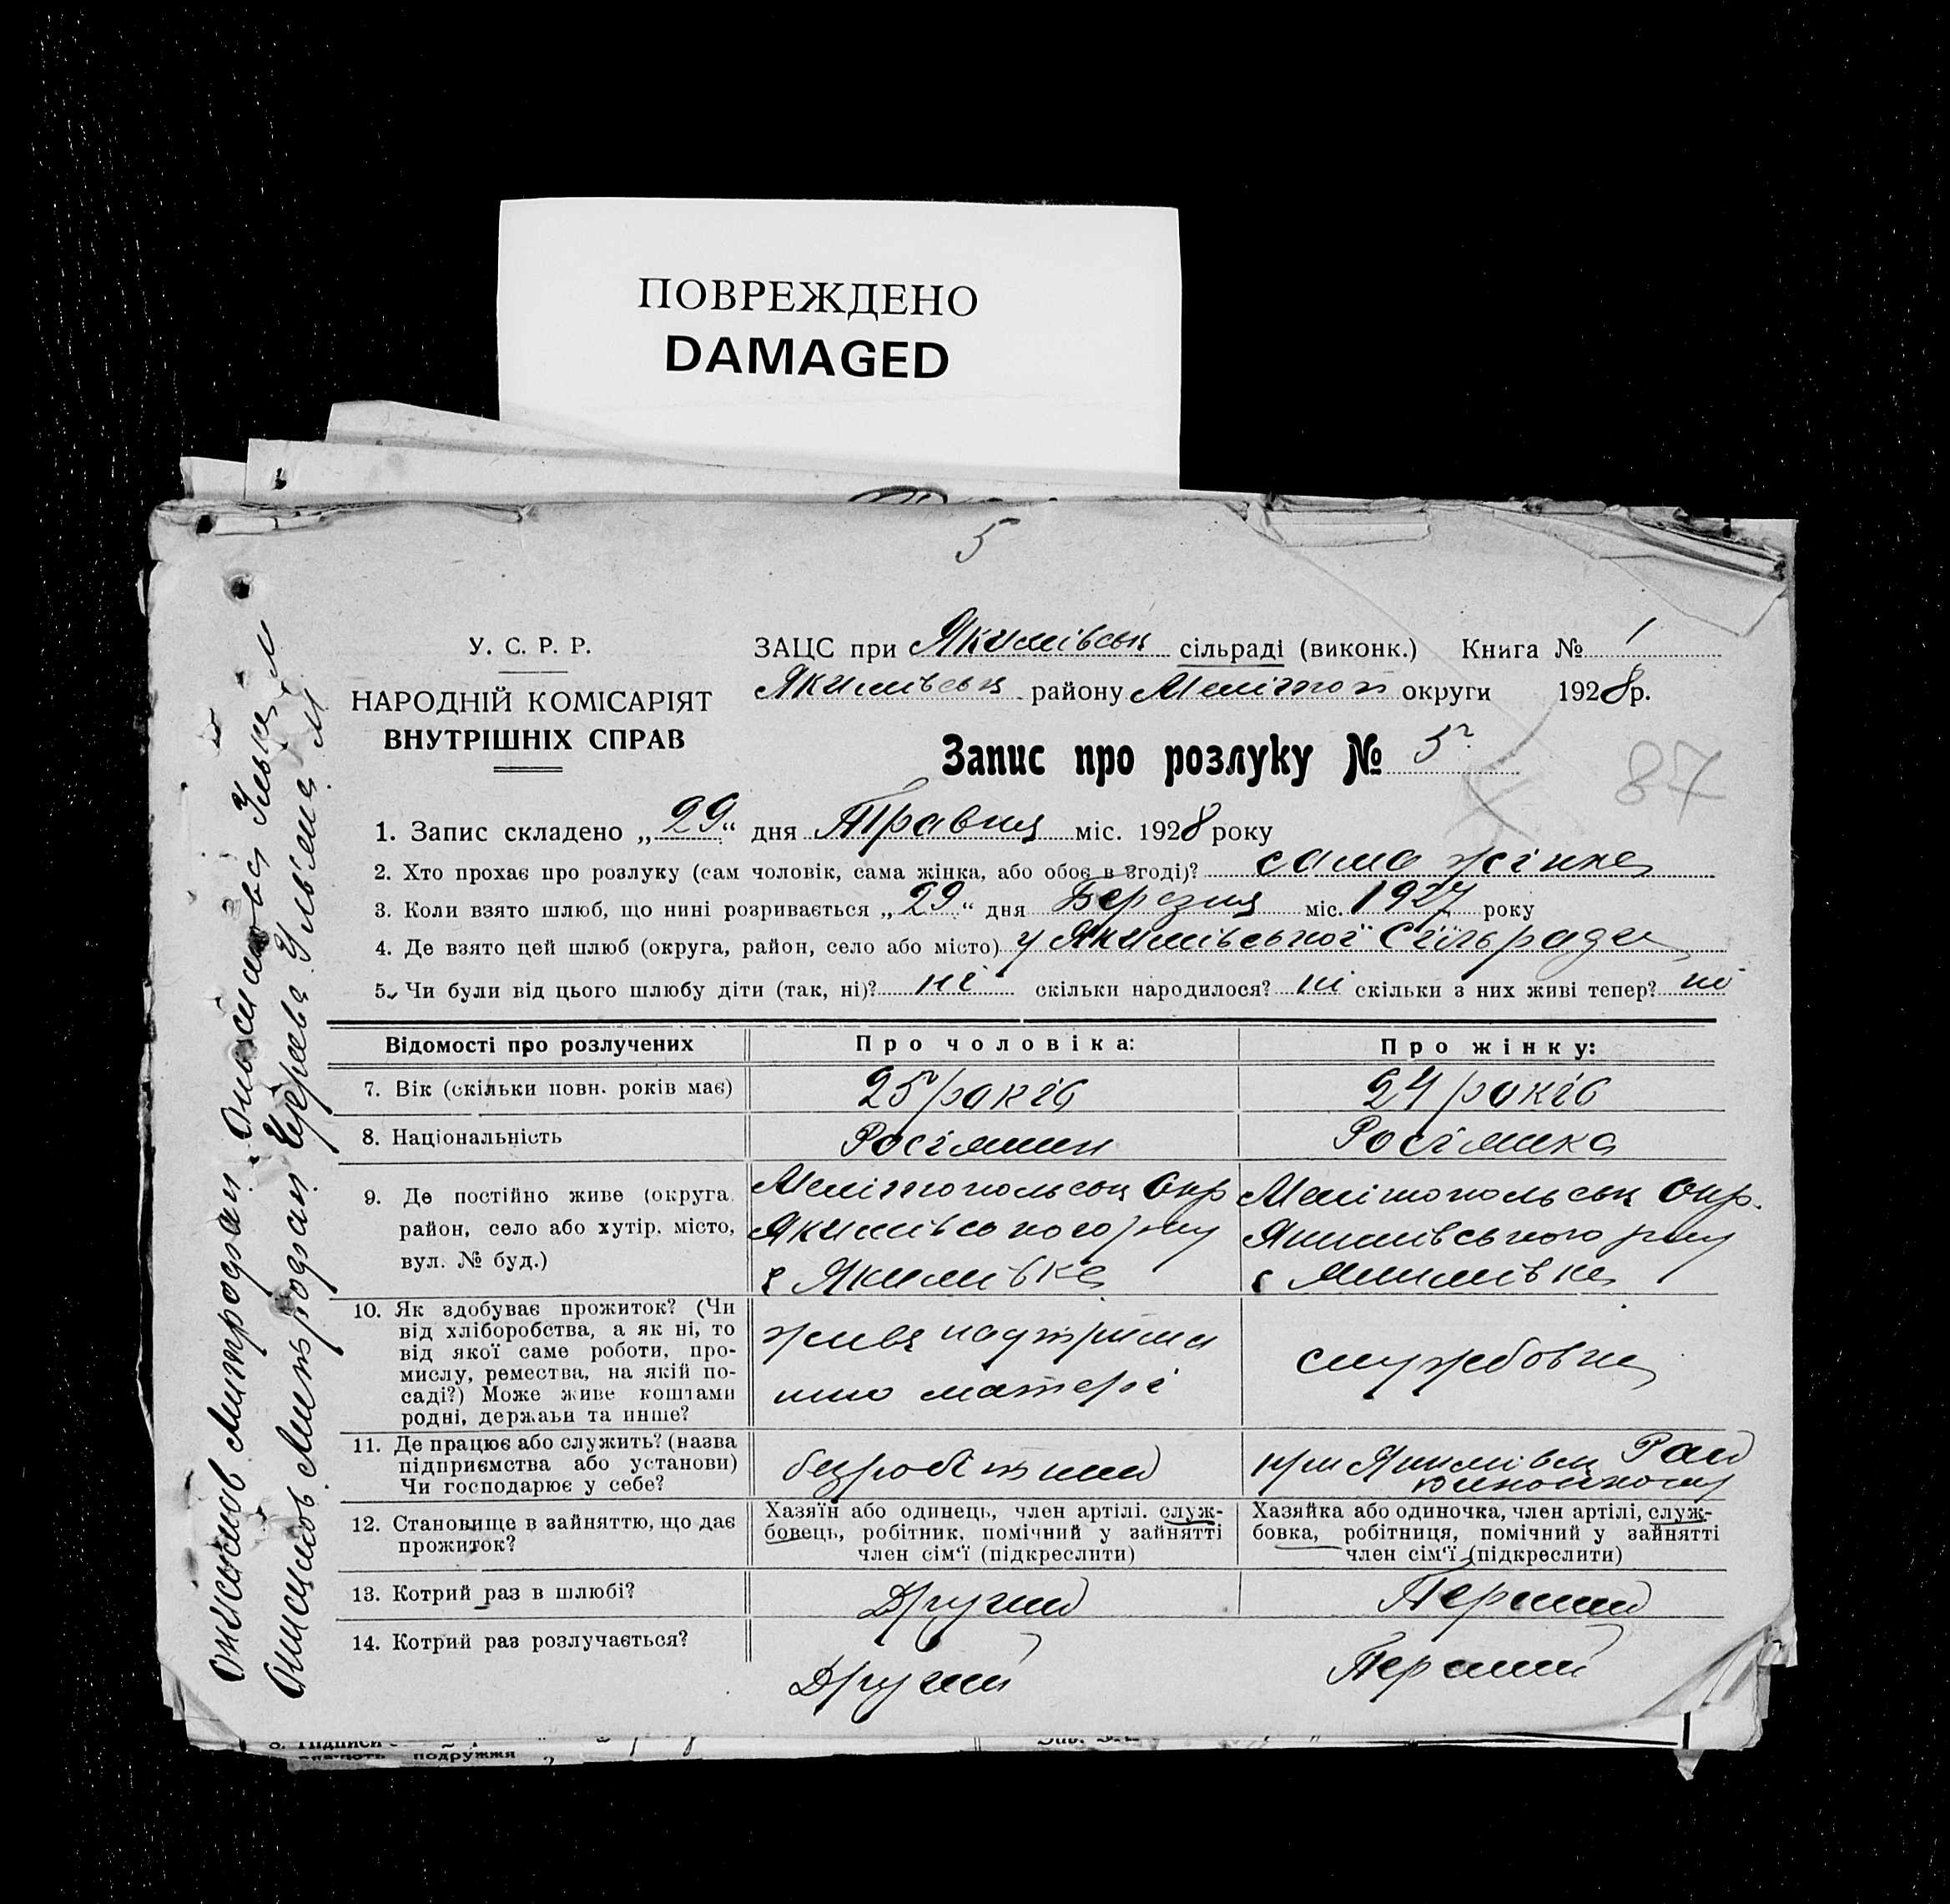 ПОВРЕЖДЕНО
DAMAGED
5
У. С. Р. Р.
НАРОДНІЙ КОМІСАРІЯТ
ВНУТРІШНІХ СПРАВ
ЗАЦС при Якимівськ сільраді (виконк.) Книга № 1
Якимівськ району Меліттоп округи 1928 р.
Запис про розлуку № 5
87
1. Запис складено „29“ дня Травня міс. 1928 року
2. Хто прохає про розлуку (сам чоловік, сама жінка, або обоє в згоді)? сама жінка
3. Коли взято шлюб, що нині розривається „29“ дня Березня міс. 1927 року
4. Де взято цей шлюб (округа, район, село або місто) у Якимівської Сільради
5. Чи були від цього шлюбу діти (так, ні)? ні скільки народилося? ні скільки з них живі тепер? ні
Відомості про розлучених Про чоловіка: Про жінку:
7. Вік (скільки повн. років має) 25 років 24 років
8. Національність Росіянин Росіянка
9. Де постійно живе (округа район, село або хутір, місто, вул. № буд.)
Мелітопольськ Окр
Якимівського р-ну
с Якимівка
Мелітопольськ Окр.
Якимівського р-ну
с Якимівка
10. Як здобуває прожиток? (Чи
від хліборобства, а як ні, то
від якої саме роботи, про-
мислу, ремества, на якій по-
саді?) Може живе коштами
родні, держави та инше?
матері
службовка
11. Де працює або служить? (назва
підприємства або установи)
Чи господарює у себе?
безробітний
при Якимівськ Рай
виконкому
12. Становище в зайняттю, що дає
прожиток?
Хазяїн або одинець, член артілі, служ-
бовець, робітник, помічний у зайнятті
член сім'ї (підкреслити)
Хазяйка або одиночка, член артілі, служ-
бовка, робітниця, помічний у зайнятті
член сім'ї (підкреслити)
13. Котрий раз в шлюбі? Другий Перший
14. Котрий раз розлучається? Другий Перший
Онисимов Митродан Онисимова
Онисимов Митродан
подружжя